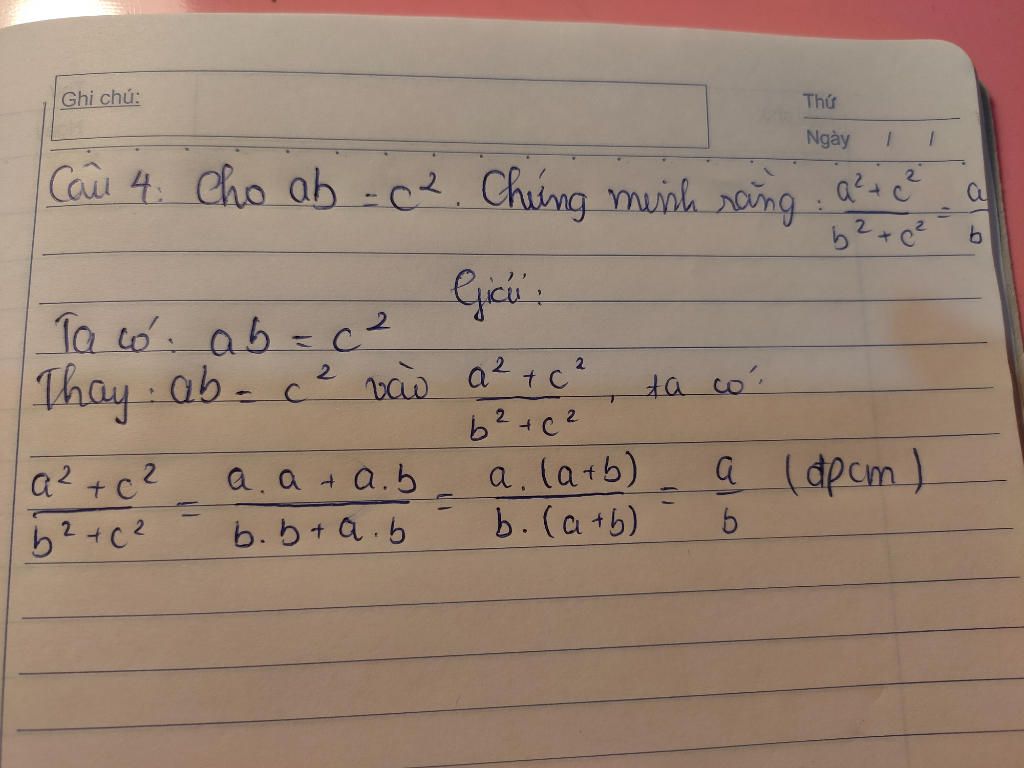 Ghi chú:
Thứ
Ngày / /
Câu 4: Cho ab = c². Chứng minh rằng: (a² + c²)/(b² + c²) = a/b
Giải:
Ta có: ab = c²
Thay: ab = c² vào (a² + c²)/(b² + c²), ta có:
(a² + c²)/(b² + c²) = (a.a + a.b)/(b.b + a.b) = (a.(a+b))/(b.(a+b)) = a/b (đpcm)